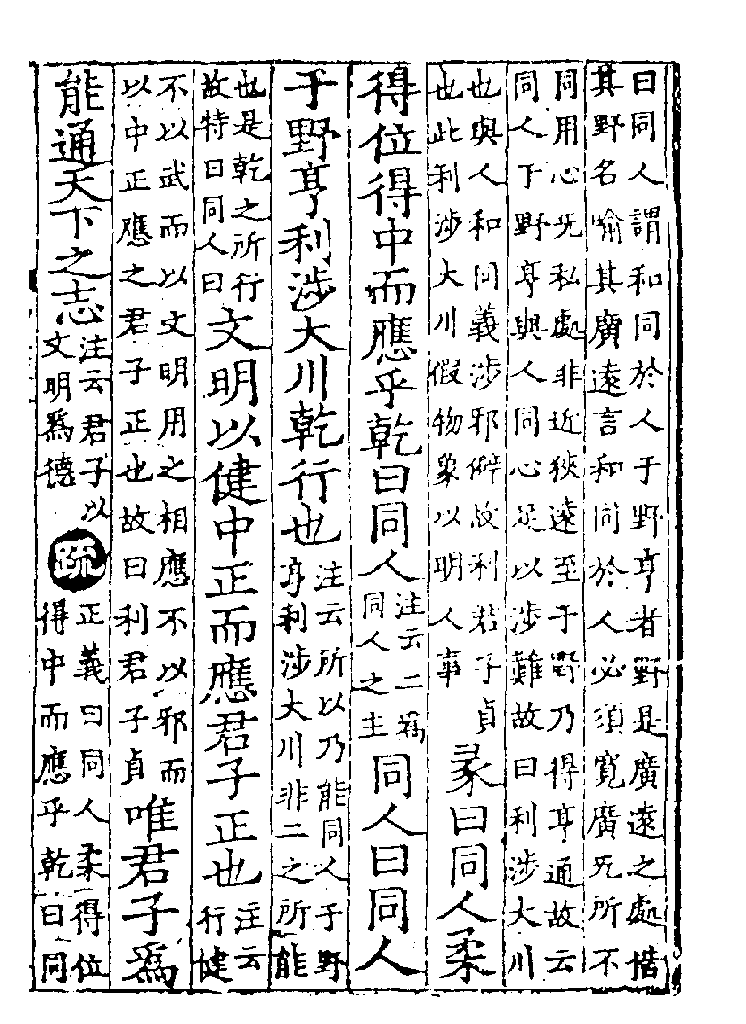 曰同人謂和同於人于野亨者野是廣遠之處措
其野名喻其廣遠言和同於人必須寬廣旡所不
同用心旡私處非近狹遠至于野乃得亨通故云
同人于野亨與人同心足以涉難故曰利涉大川
也與人和同義涉邪僻故利君子貞
也此利涉大川假物象以明人事
彖曰同人柔
得位得中而應乎乾曰同人
注云二爲
同人之主
同人曰同人
于野亨利涉大川乾行也
注云所以乃能同人于野
亨利涉大川非二之所能
也是乾之所行
故特曰同人曰
文明以健中正而應君子正也
注云
行健
不以武而以文明用之相應不以邪而
以中正應之君子正也故曰利君子貞
唯君子爲
能通天下之志
注云君子以
文明爲德
疏
正義曰同人柔得位
得中而應乎乾曰同